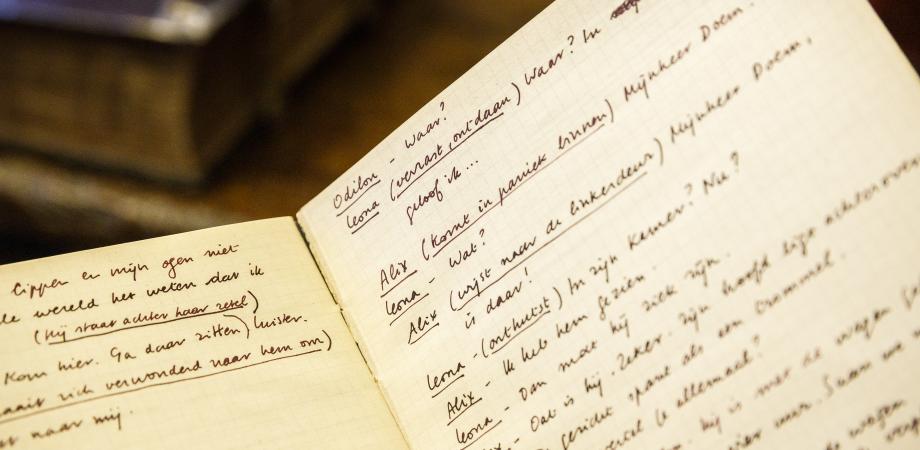 lippen en mijn ogen niet
de wereld het weten dat ik
(hij staat achter haar zetel)
Kom hier. Ga daar zitten) luister.
zich verwonderd naar hem om)
naar mij.
Odilon - Waar?
Leona (verrast, ontdaan) Waar? In
geloof ik...
Alix (komt in paniek binnen) Mijnheer Doem.
Leona - Wat?
Alix (wijst naar de linkerdeur) Mijnheer Doem,
is daar!
Leona - (onthutst) In zijn kamer? Nu?
Alix - Ik heb hem gezien.
Leona - Dan moet hij ziek zijn.
Dat is hij. Zeker. Zijn hoofd ligt achterover
gezicht spant als een trommel.
je allemaal?
hij is met de wagen
de wagen